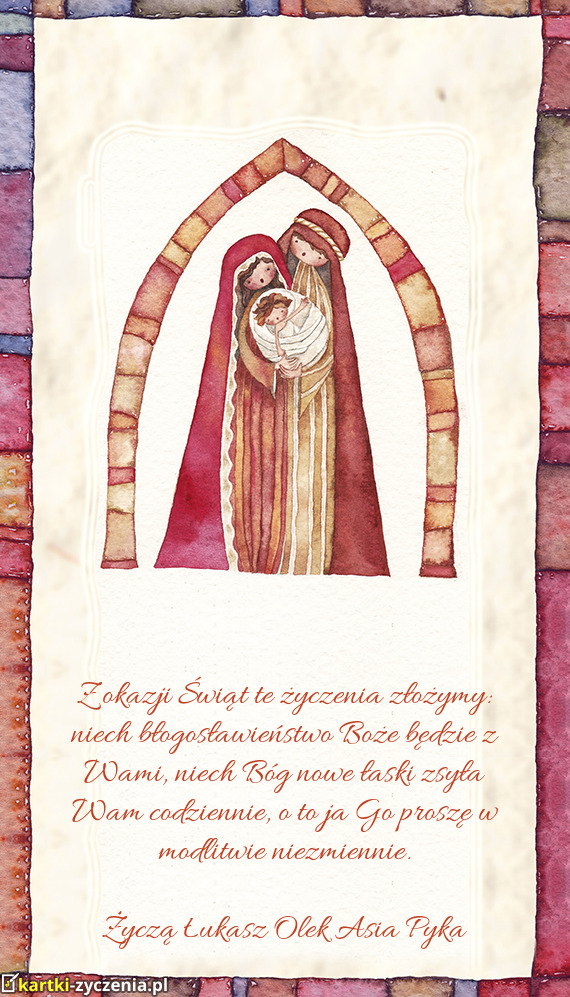 Z okazji Świąt te życzenia złożymy:
niech błogosławieństwo Boże będzie z
Wami, niech Bóg nowe łaski zsyła
Wam codziennie, o to ja Go proszę w
modlitwie niezmiennie.
Życzą Łukasz Olek Asia Pyka
kartki-zyczenia.pl